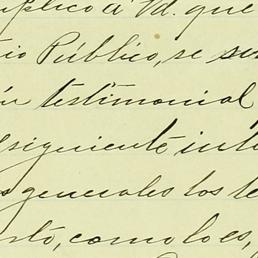 uplico á Vd. que
io Público, se
n testimonial
siguiente inte
s generales los te
sto, como lo es,